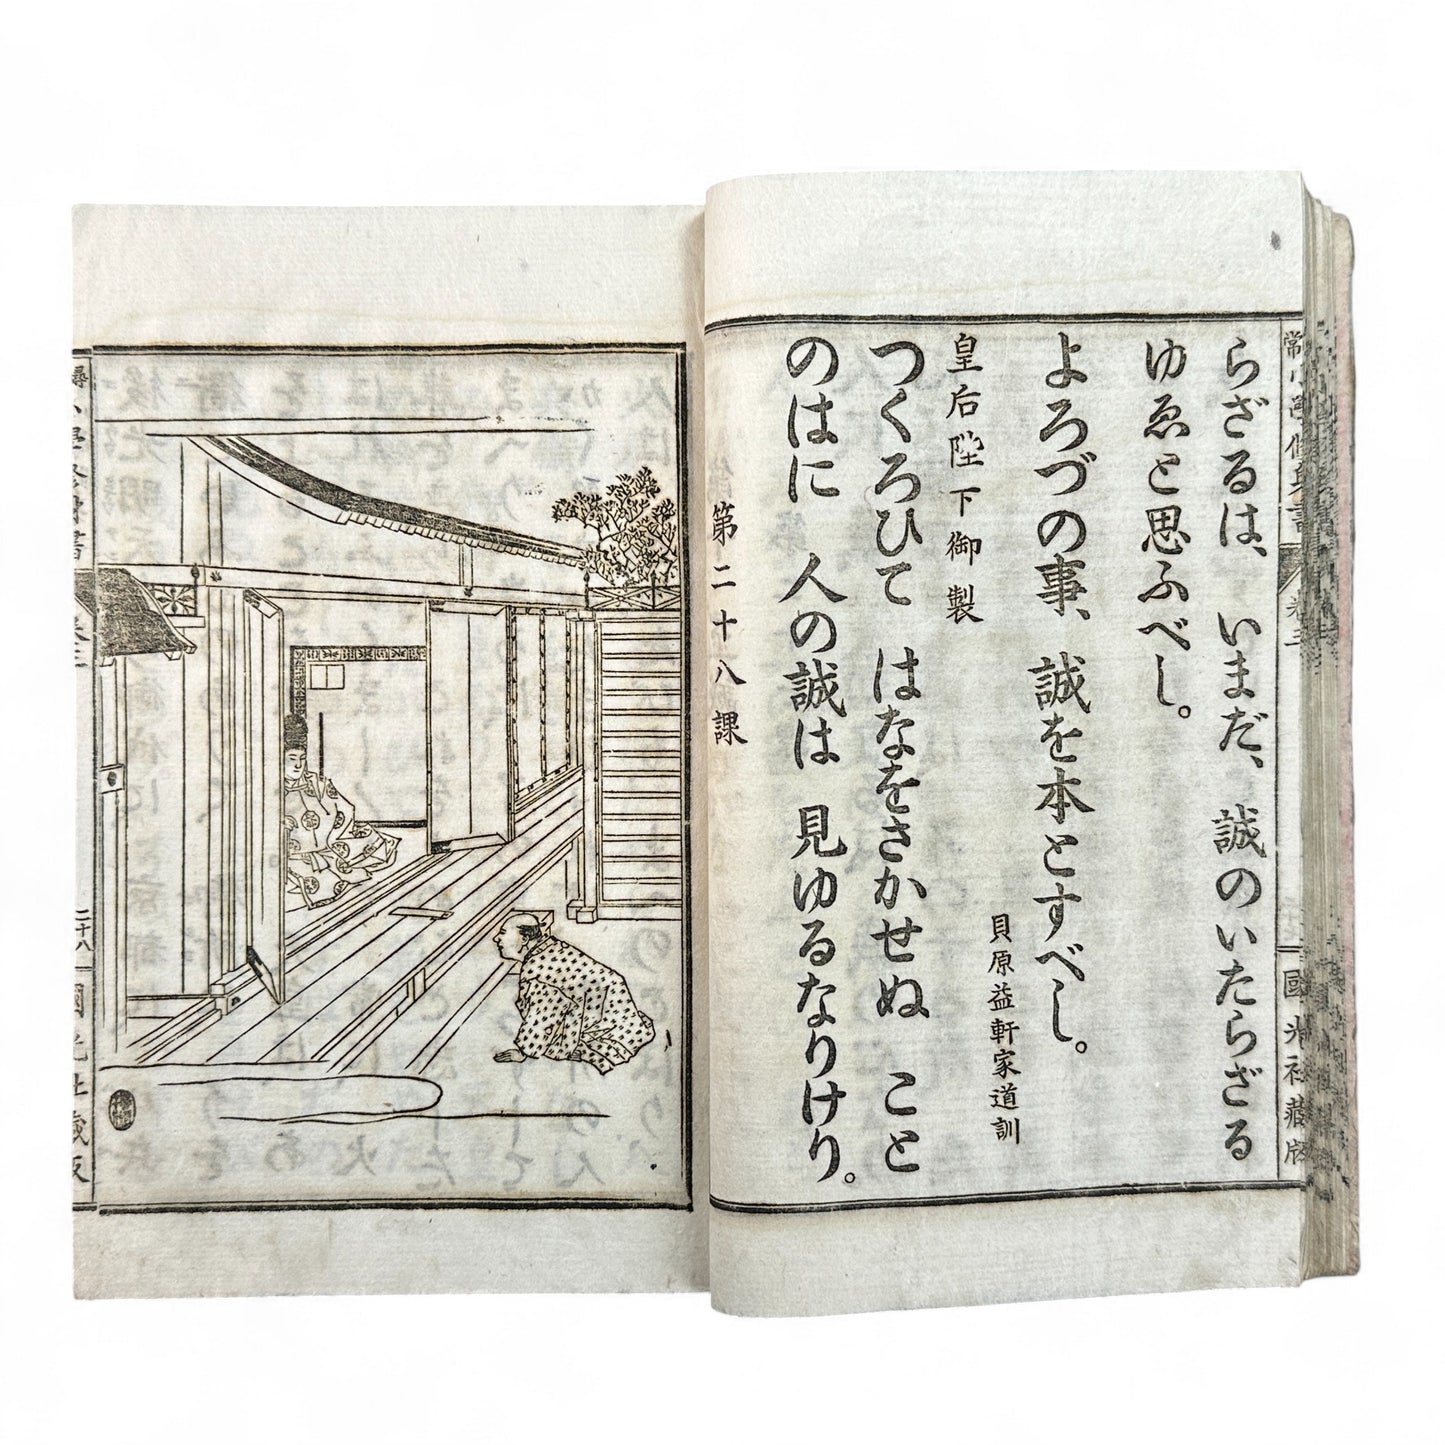 らざるは、いまだ、誠のいたらざる
ゆゑと思ふべし。
よろづの事、誠を本とすべし。
貝原益軒家道訓
皇后陛下御製
つくろひて はなをさかせぬ こと
のはに 人の誠は 見ゆるなりけり。
第二十八課
常小學修身書
卷三
國光社藏版
卷三
二十八
國光社藏版